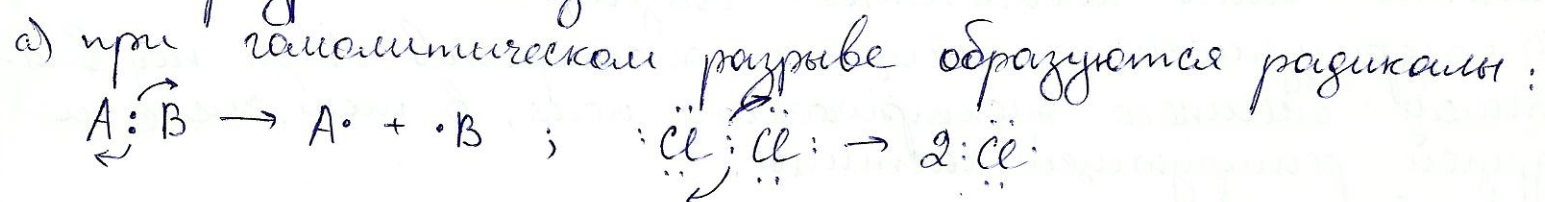 а) при гомолитическом разрыве образуются радикалы:
A : B → A· + ·B ; :Cl : Cl: → 2 :Cl·